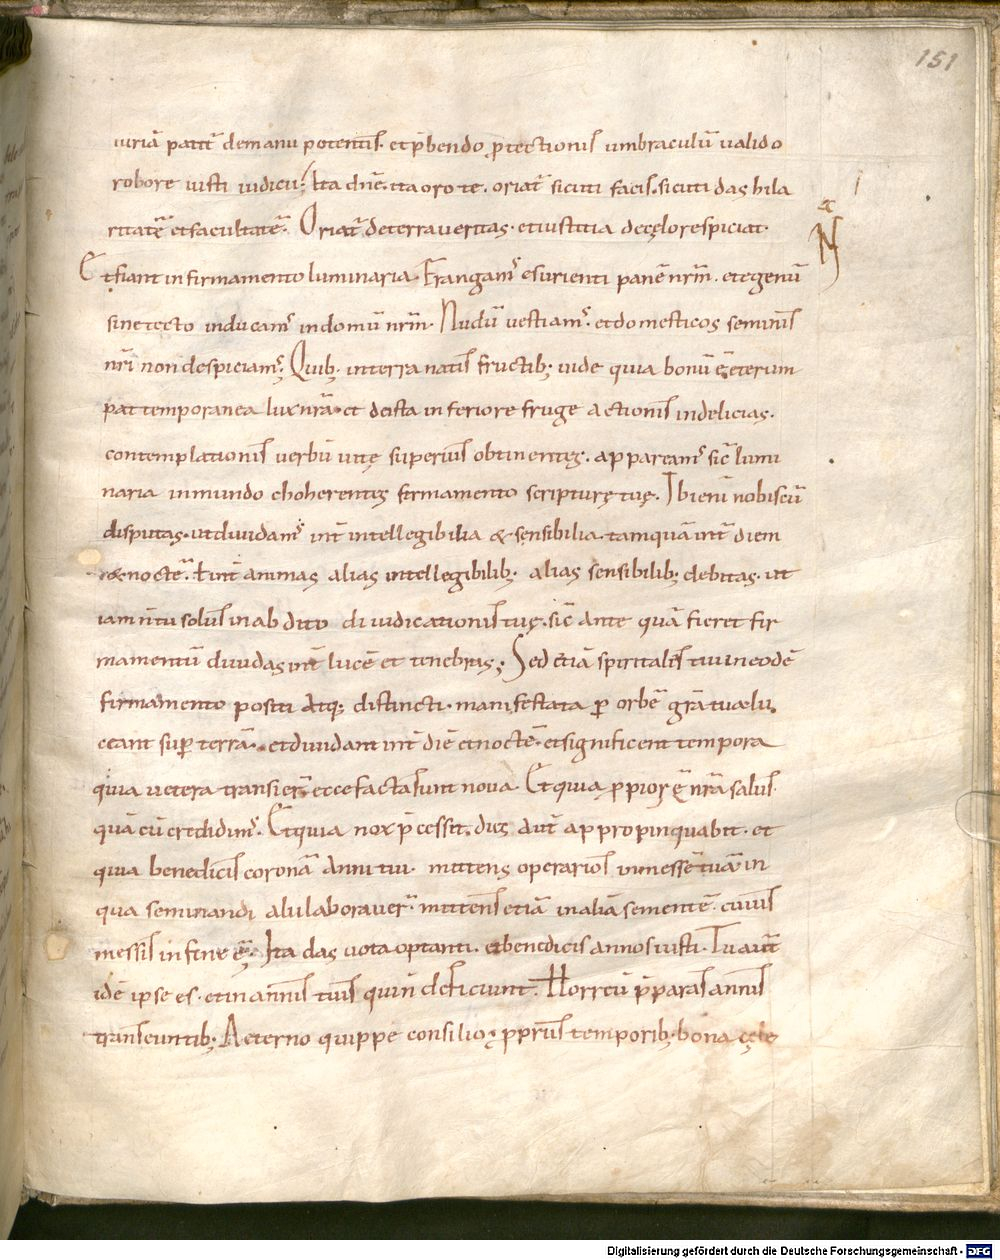 151
iuriā patit̄ demanu potentis. et p̄bendo ꝑtectionis umbraculū ualido
robore iusti iudicii; Ita dn̄e. ita oro te. oriat̄ sicuti facis. sicuti das hila
ritatē et facultatē. Oriat̄ deterra ueritas. et iustitia decęlo respiciat.
N̄
Et fiant in firmamento luminaria. Frangam᾽ esurienti panē nr̄m. et egenū
sine tecto inducam᾽ in domū nr̄m. Nudū uestiam᾽. et domesticos seminis
nr̄i non despiciam᾽; Quib; interra natis fructib; uide quia bonū ē et erum
pat temporanea lux nr̄a. et deista inferiore fruge actionis indelicias.
contemplationis uerbū uitę superius obtinentes. appaream᾽ sic̄ lumi
naria inmundo choherentes firmamento scripturę tuę. Ibi eni nobiscū
disputas. ut diuidam᾽ int̄ intellegibilia & sensibilia. tamquā int̄ diem
& noctē. ł int̄ animas alias intellegibilib; alias sensibilib; debitas. ut
iam n̄ tu solus in abdito diiudicationis tuę. sic̄ ante quā fieret fir
mamentū diuidas int̄ lucē et tenebras; Sed etiā spiritales tui in eodē
firmamento positi atq; distincti. manifestata ꝑ orbē gr̄a tua lu
ceant suꝑ terrā. et diuidant int̄ diē et noctē. et significent tempora
quia uetera transier̄. ecce facta sunt noua. Et quia ꝓpior ē nr̄a salus
quā cū credidim᾽. Et quia nox p̄cessit. dies aut̄ appropinquabit. et
quia benedicis coronā anni tui. mittens operarios in messē tuā. in
qua seminandi alii laborauer̄. mittens etiā in aliā sementē. cuius
messis in fine ē. Ita das uota optanti. et benedicis annos iusti. Tu aut̄
idē ipse es. et in annis tuis qui n̄ deficiunt. Horreū p̄paras annis
transeuntib; Aeterno quippe consilio ꝓpriis temporib; bona cęle
Digitalisierung gefördert durch die Deutsche Forschungsgemeinschaft - DFG